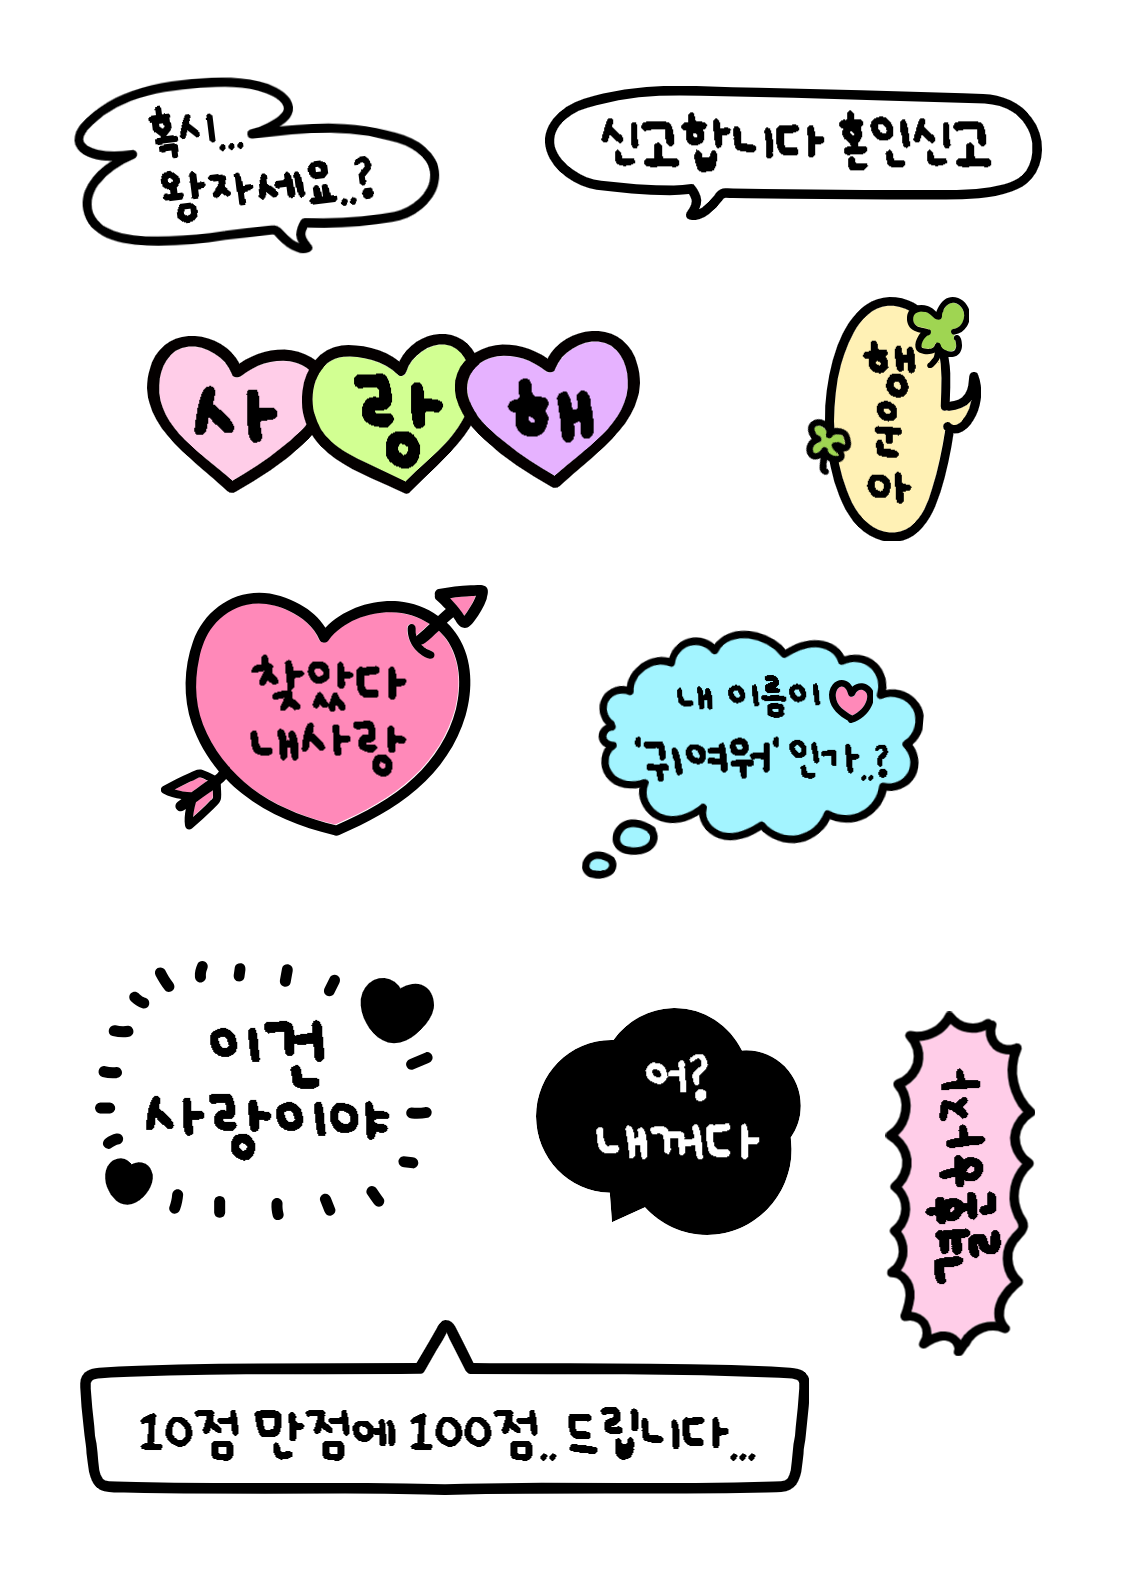 혹시...
왕자세요..?
신고합니다 혼인신고
사랑해
행운아
찾았다
내사랑
내 이름이
'귀여워' 인가..?
이건
사랑이야
어?
내꺼다
결혼하자
10점 만점에 100점.. 드립니다...